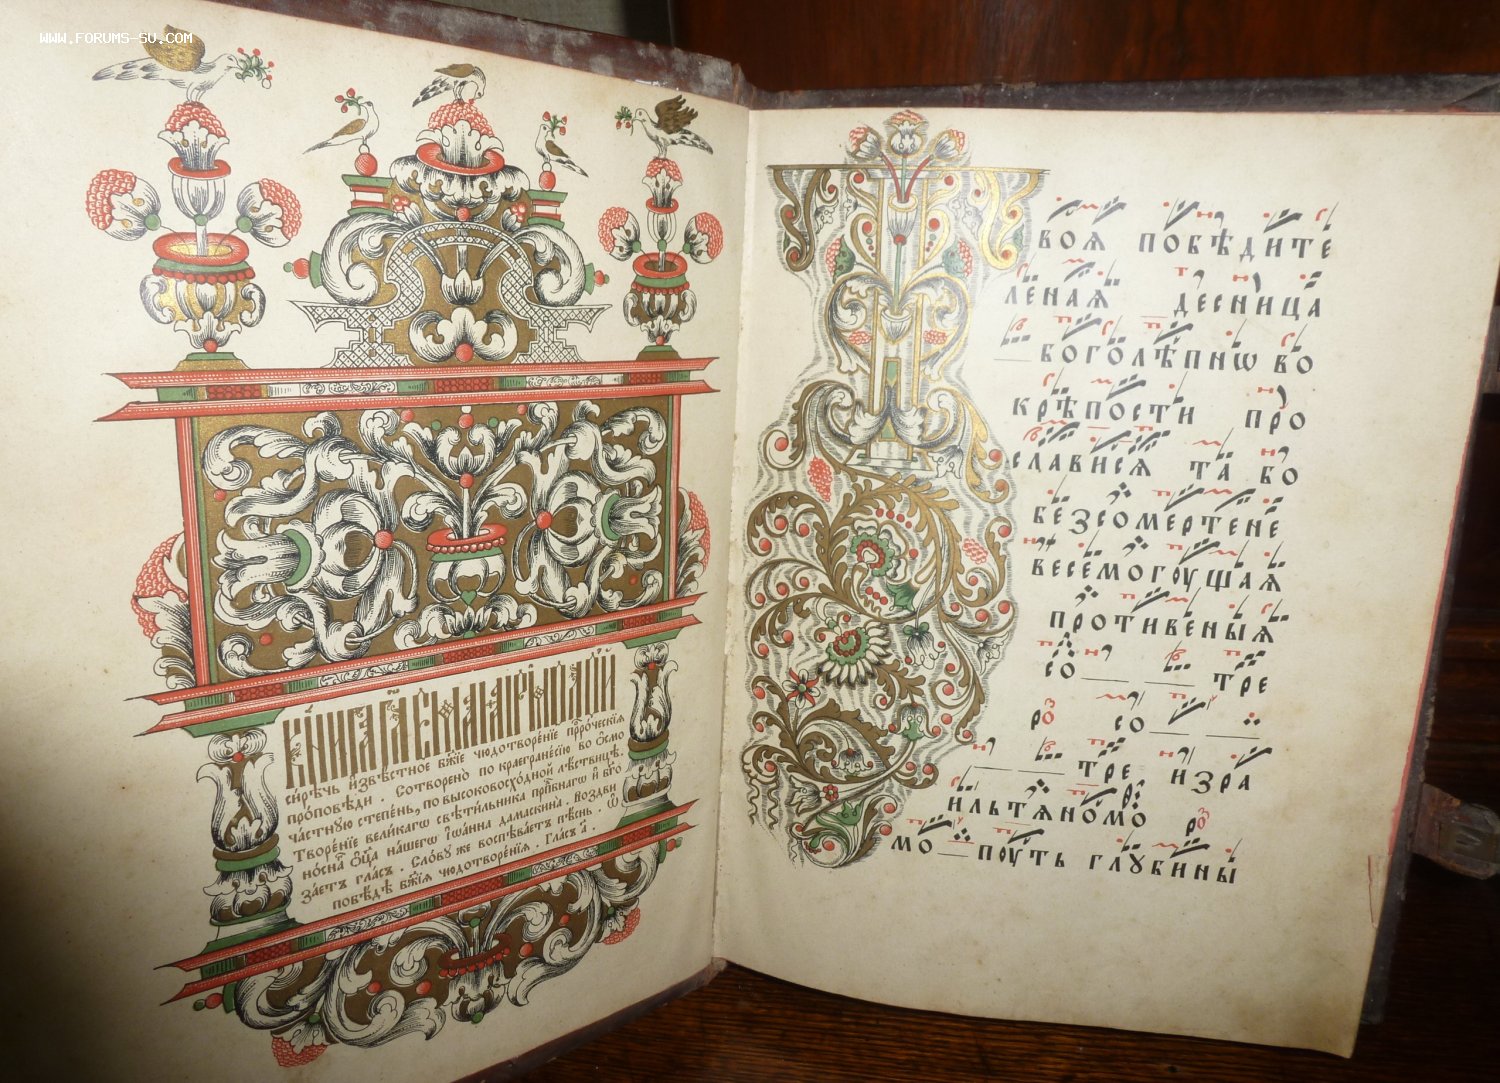 WWW.FORUMS-SU.COM
КНИГА ГЛЕМАѦ ІРМОЛОЙ
си́рѣчь и҆звѣ́стное бж҃їе чюдотворе́нїе прⷪ҇ро́ческїѧ
про́поведи . Сотворено̀ по краегране́сїю во ѻ҆́смо
ча́стную степе́нь, по высоковосхо́дной лѣ́ствицѣ.
Творе́нїе вели́кагѡ свѣти́льника прпⷣбнагѡ и҆ бг҃о
но́снагѡ ѻ҆ц҃а̀ на́шегѡ і҆ѡа́нна дамаскина̀ . Воздви
за́етъ гла́съ . Сло́ву же воспѣва́етъ пѣ́снь . Ѡ
побѣ́дѣ бж҃їѧ чюдотворе́нїѧ . Гла́съ а҃ .
воѧ побѣдите
леная десница
богольпнѡ во
крѣпости про
славися та бо
безсомертене
весемогѹщая
противеныя
со тре
со
тре изра
ильтяномо
мо пѹть глꙋбины